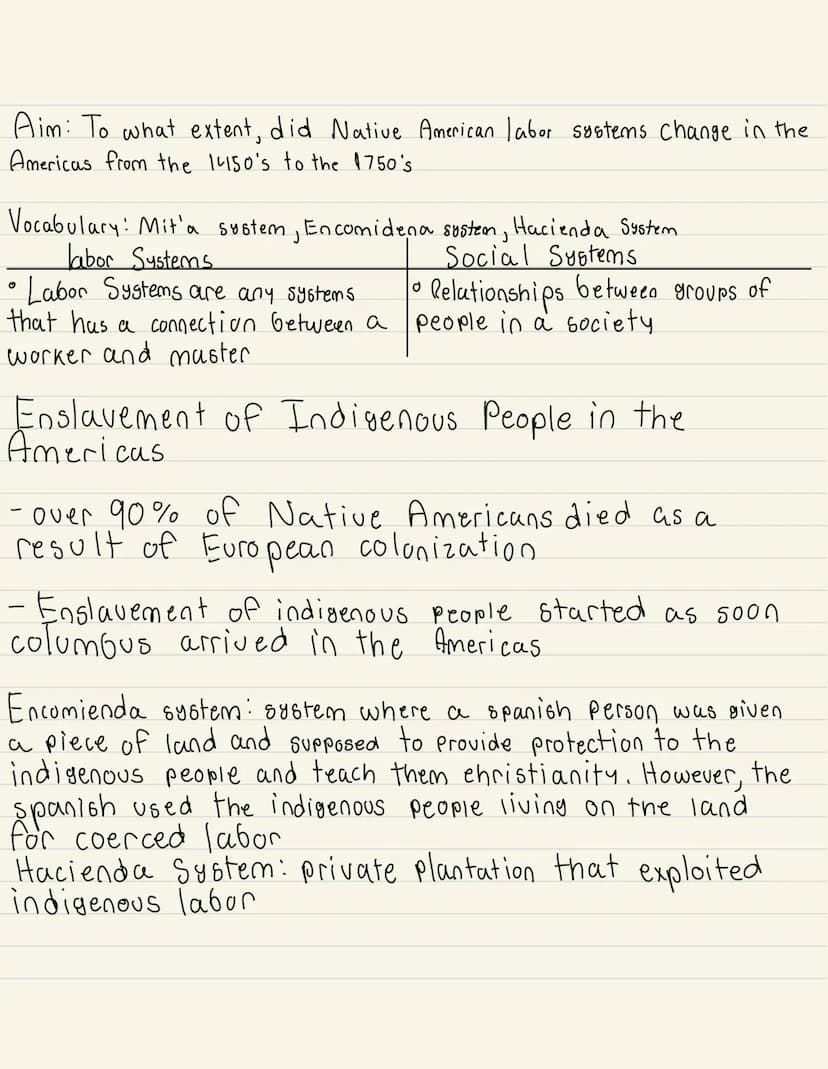 Aim: To what extent, did Native American labor systems change in the
Americas from the 1450's to the 1750's
Vocabulary: Mit'a system, Encomidena system, Hacienda System
labor Systems
Social Systems
• Labor Systems are any systems
that has a connection between a
worker and master
• Relationships between groups of
people in a society
Enslavement of Indigenous People in the
Americas
- over 90% of Native Americans died as a
result of European colonization
- Enslavement of indigenous people started as soon
columbus arrived in the Americas
Encomienda system: system where a spanish person was given
a piece of land and supposed to provide protection to the
indigenous people and teach them christianity. However, the
spanish used the indigenous people living on the land
for coerced labor
Hacienda System: private plantation that exploited
indigenous labor